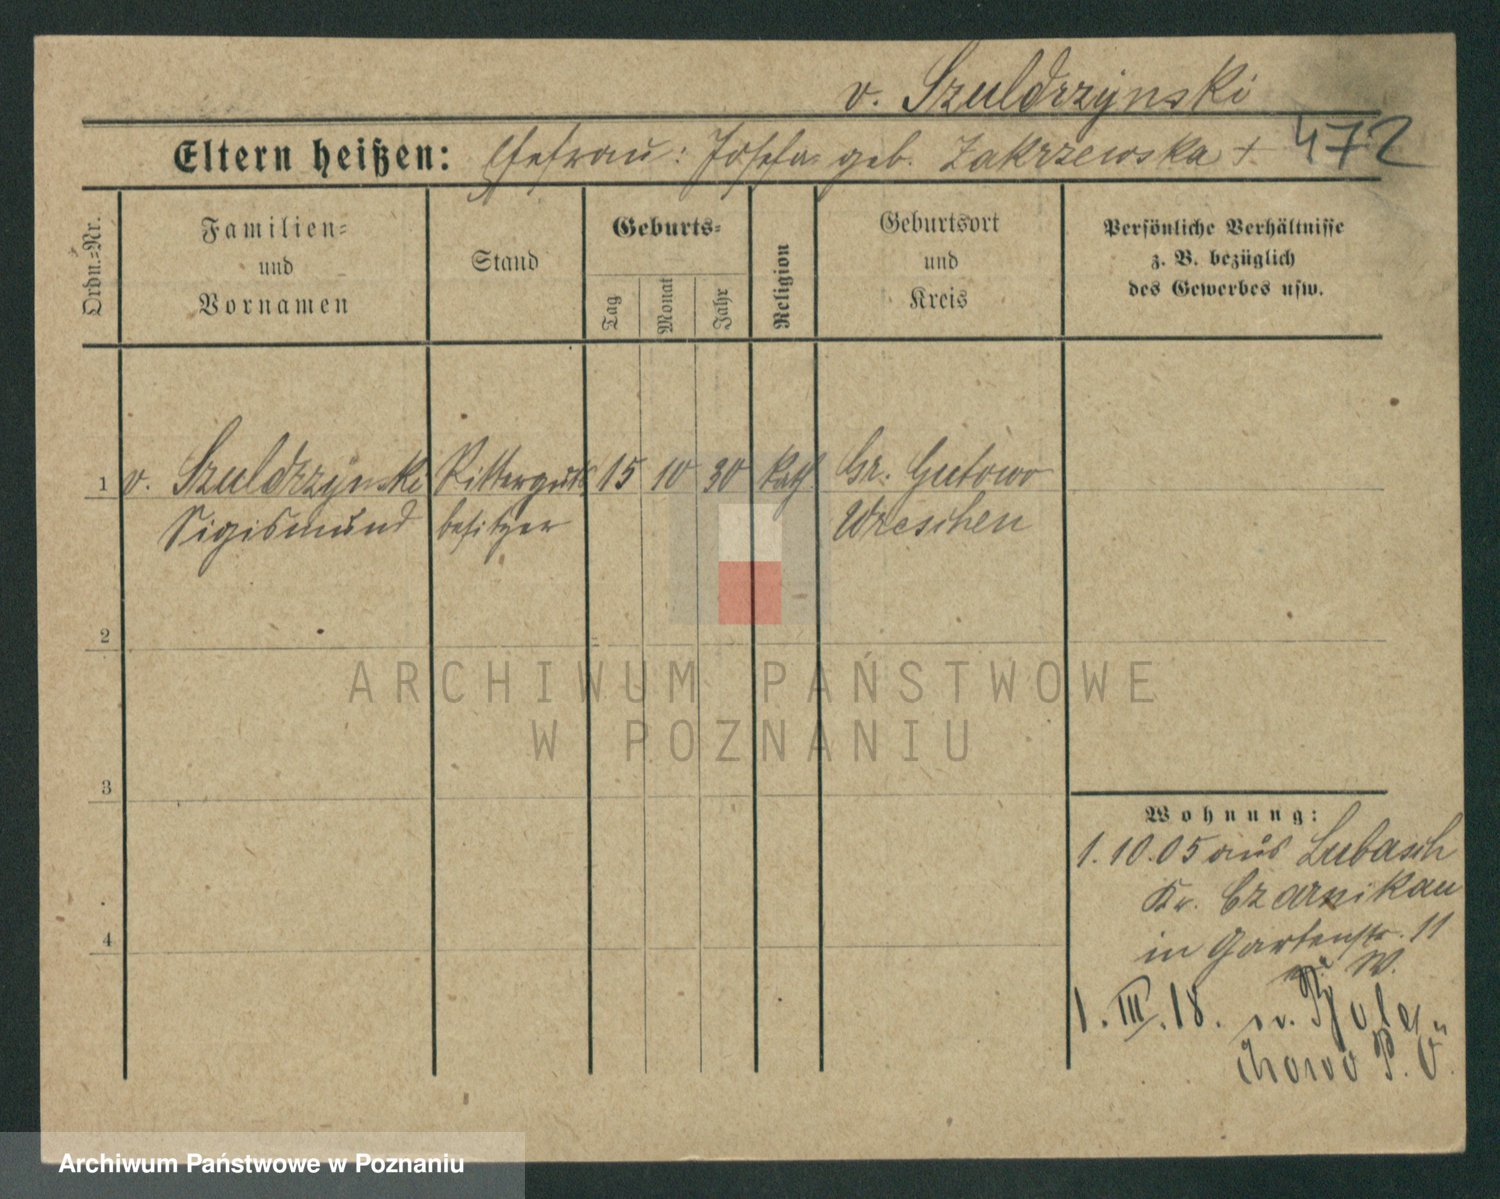 v. Szuldrzynski
Eltern heißen: Ehefrau: Josefa geb. Zakrzewska + 472
Ordn.-Nr.
Familien-
und
Vornamen
Stand
Geburts-
Tag
Monat
Jahr
Religion
Geburtsort
und
Kreis
Persönliche Verhältnisse
z. B. bezüglich
des Gewerbes usw.
1 v. Szuldrzynski Ritterguts 15 10 30 kath Gr. Gutowo
Sigismund besitzer Wreschen
2
ARCHIWUM PAŃSTWOWE
W POZNANIU
3
Wohnung:
1.10.05 aus Lubasch
Kr. Czarnikau
4
in Gartenstr. 11
W.
1.III.18.
P. O.
Archiwum Państwowe w Poznaniu